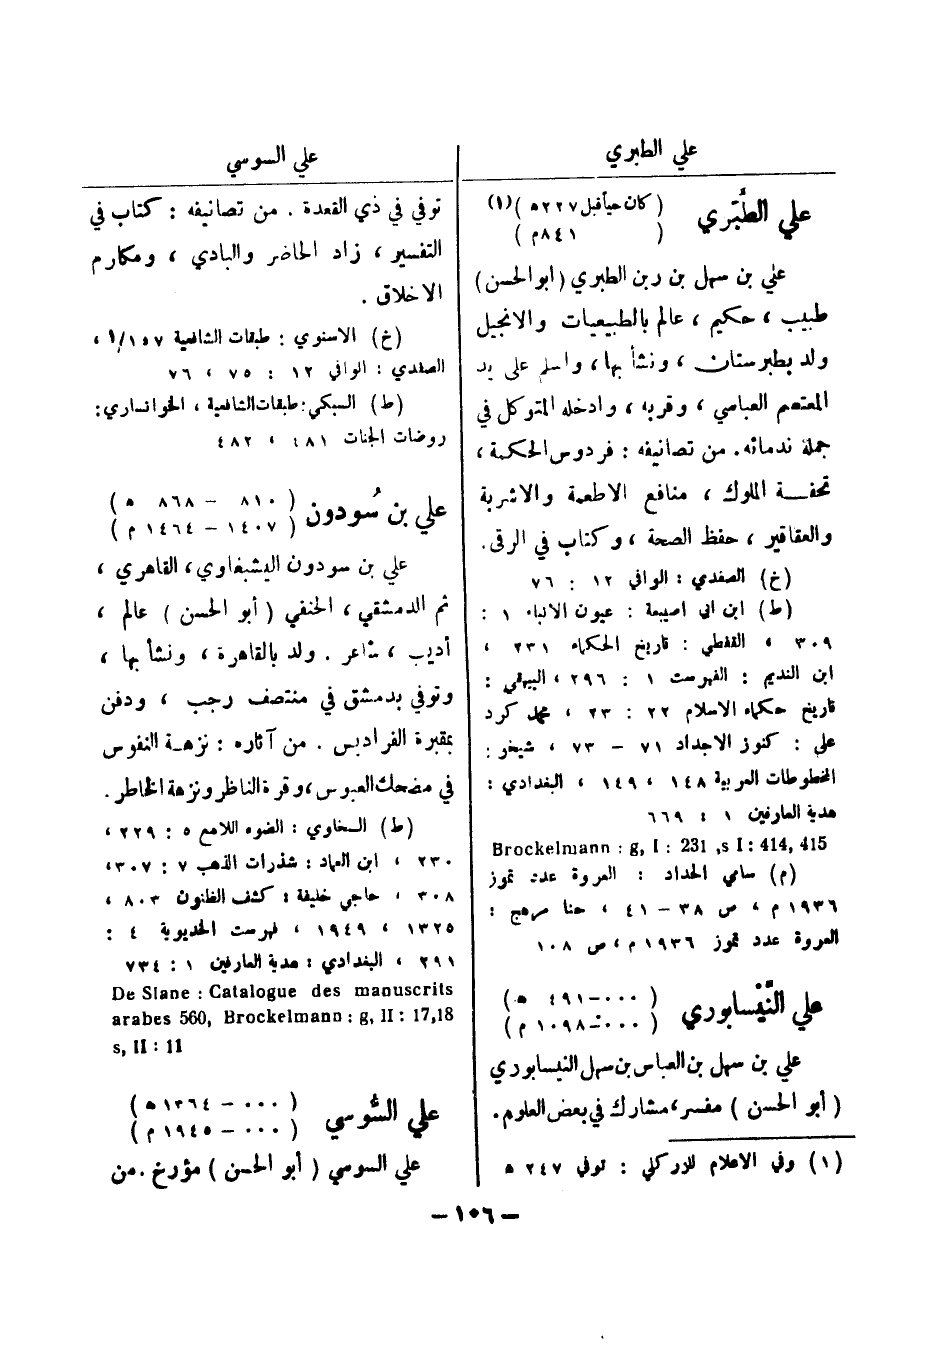 علي الطبري
علي الطَّبَري ( كان حياً قبل ٢٢٧ هـ )(١)
( ٨٤١ م )
علي بن سهل بن ربن الطبري ( ابو الحسن )
طبيب ، حكيم ، عالم بالطبيعيات والانجيل
ولد بطبرستان ، ونشأ بها ، واسلم على يد
المعتصم العباسي ، وقربه ، وادخله المتوكل في
جملة ندمائه . من تصانيفه : فردوس الحكمة ،
تحفة الملوك ، منافع الاطعمة والاشربة
والعقاقير ، حفظ الصحة ، وكتاب في الرقى .
(خ) الصفدي : الوافي ١٢ : ٧٦
(ط) ابن ابي اصيبعة : عيون الانباء ١ :
٣٠٩ ، القفطي : تاريخ الحكماء ٢٣١ ،
ابن النديم : الفهرست ١ : ٢٩٦ ، البيهقي :
تاريخ حكماء الاسلام ٢٢ : ٢٣ ، محمد كرد
علي : كنوز الاجداد ٧١ – ٧٣ ، شيخو :
المخطوطات العربية ١٤٨ ، ١٤٩ ، البغدادي :
هدية العارفين ١ : ٦٦٩
Brockelmann : g, I : 231 ,s I : 414, 415
(م) سامي الحداد : العروة عدد تموز
١٩٣٦ م ، ص ٣٨ – ٤١ ، حنا مرهج :
العروة عدد تموز ١٩٣٦ م ، ص ١٠٨
علي النَّيْسابوري ( ٠٠٠ – ٤٩١ هـ )
( ٠٠٠ – ١٠٩٨ م )
علي بن سهل بن العباس بن سهل النيسابوري
( أبو الحسن ) مفسر ، مشارك في بعض العلوم .
(١) وفي الاعلام للزركلي : توفي ٢٤٧ هـ
علي السوسي
توفي في ذي القعدة . من تصانيفه : كتاب في
التفسير ، زاد الحاضر والبادي ، ومكارم
الاخلاق .
(خ) الاسنوي : طبقات الشافعية ١٥٧/أ ،
الصفدي : الوافي ١٢ : ٧٥ ، ٧٦
(ط) السبكي : طبقات الشافعية ، الخوانساري :
روضات الجنات ٤٨١ ، ٤٨٢
علي بن سُودون ( ٨١٠ – ٨٦٨ هـ )
( ١٤٠٧ – ١٤٦٤ م )
علي بن سودون اليشبغاوي ، القاهري ،
ثم الدمشقي ، الحنفي ( أبو الحسن ) عالم ،
أديب ، شاعر . ولد بالقاهرة ، ونشأ بها ،
وتوفي بدمشق في منتصف رجب ، ودفن
بمقبرة الفراديس . من آثاره : نزهة النفوس
في مضحك العبوس ، وقرة الناظر ونزهة الخاطر .
(ط) السخاوي : الضوء اللامع ٥ : ٢٢٩ ،
٢٣٠ ، ابن العماد : شذرات الذهب ٧ : ٣٠٧ ،
٣٠٨ ، حاجي خليفة : كشف الظنون ٨٠٣ ،
١٣٢٥ ، ١٩٤٩ ، فهرست الخديوية ٤ :
٢٩١ ، البغدادي : هدية العارفين ١ : ٧٣٤
De Slane : Catalogue des manuscrits
arabes 560, Brockelmann : g, II : 17,18
s, II : 11
علي السُّوسي ( ٠٠٠ – ١٣٦٤ هـ )
( ٠٠٠ – ١٩٤٥ م )
علي السوسي ( أبو الحسن ) مؤرخ . من
– ١٠٦ –